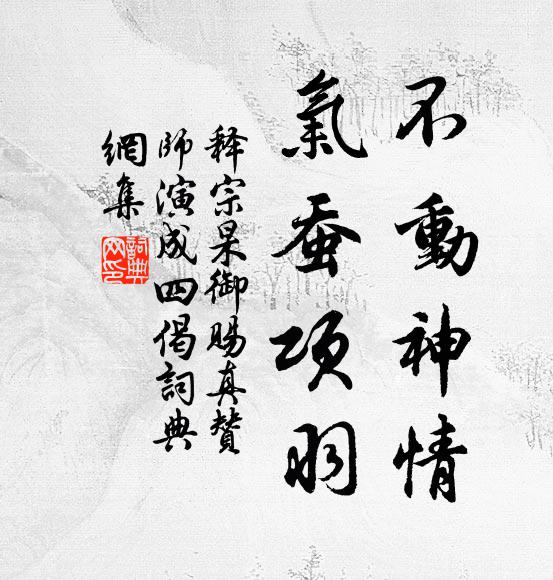 不動神情
氣蚕项羽
释宗杲御賜真贊
師演成四偈詞典
網集
詞典網印